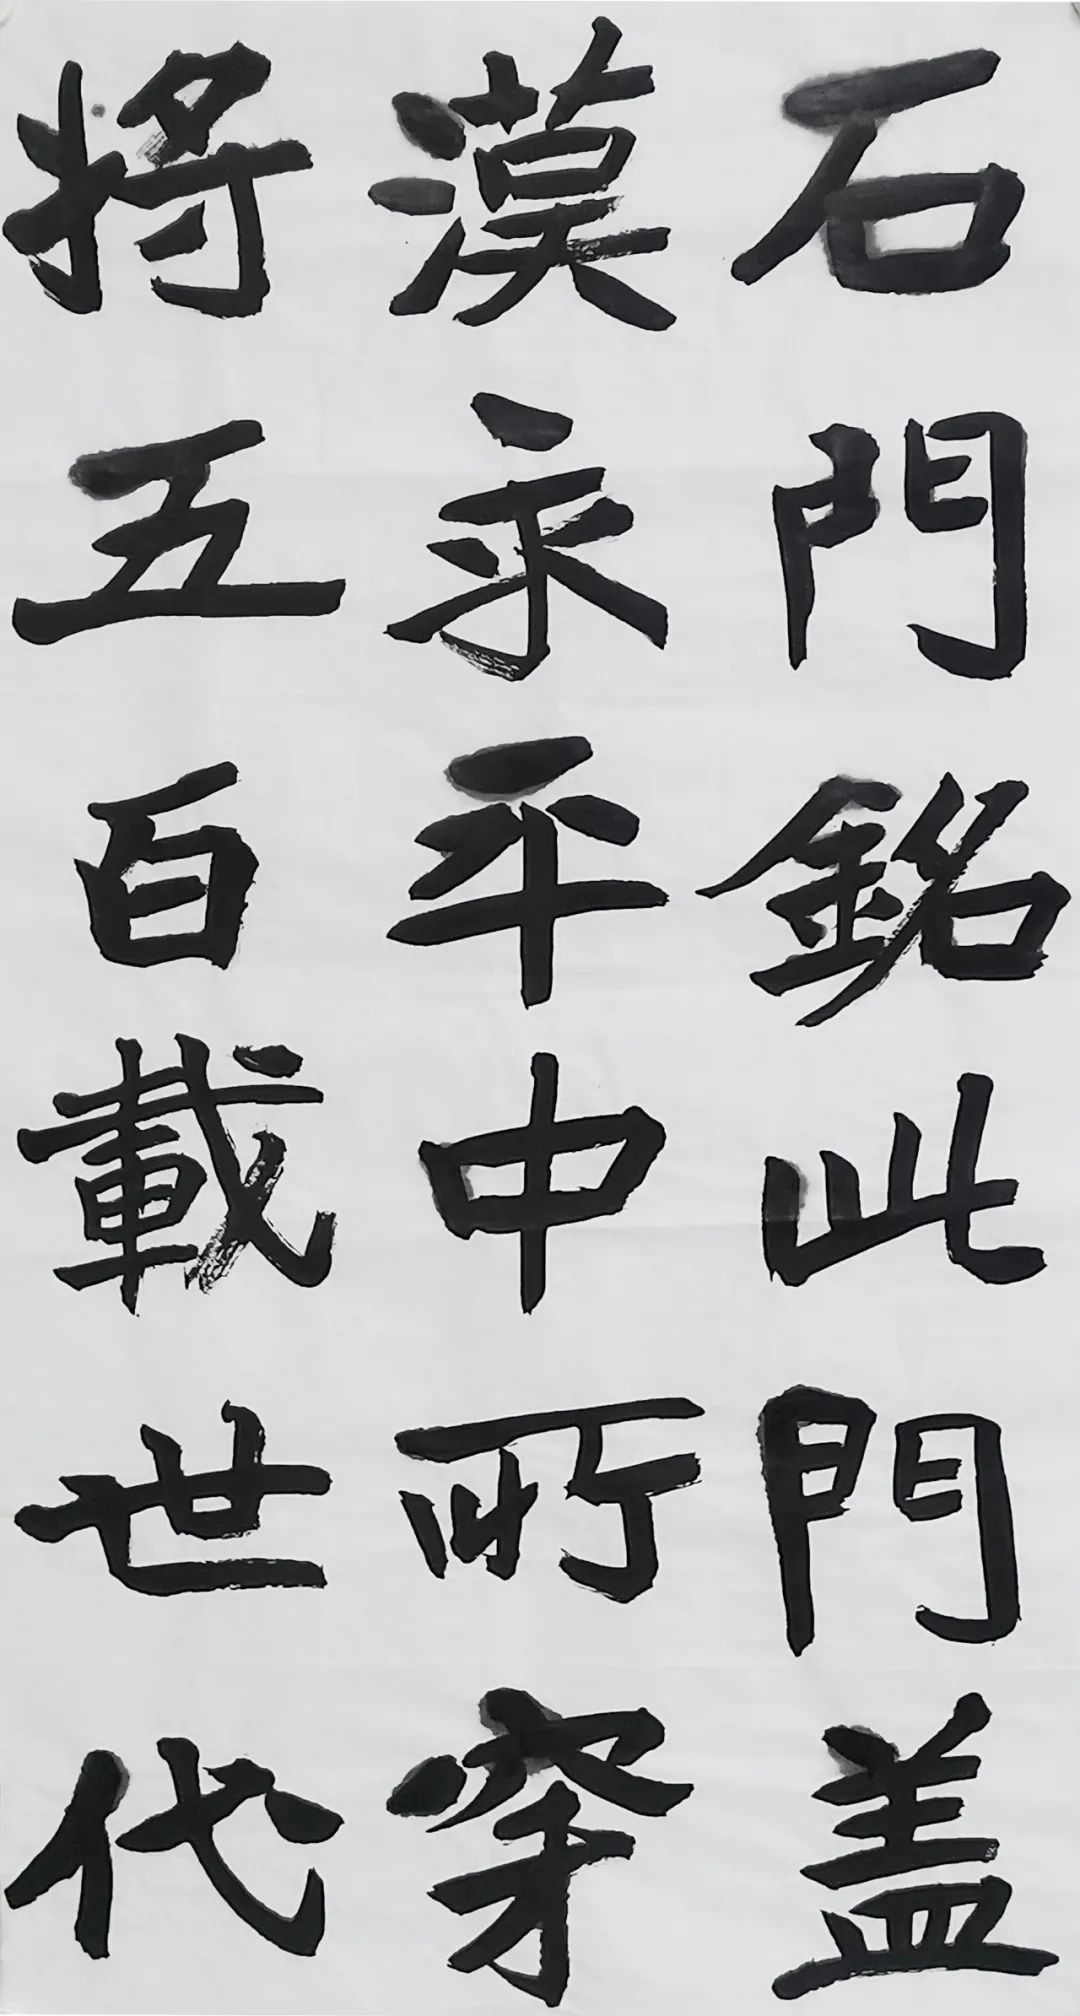 石門銘此門盖
漢永平中所穿
將五百載世代